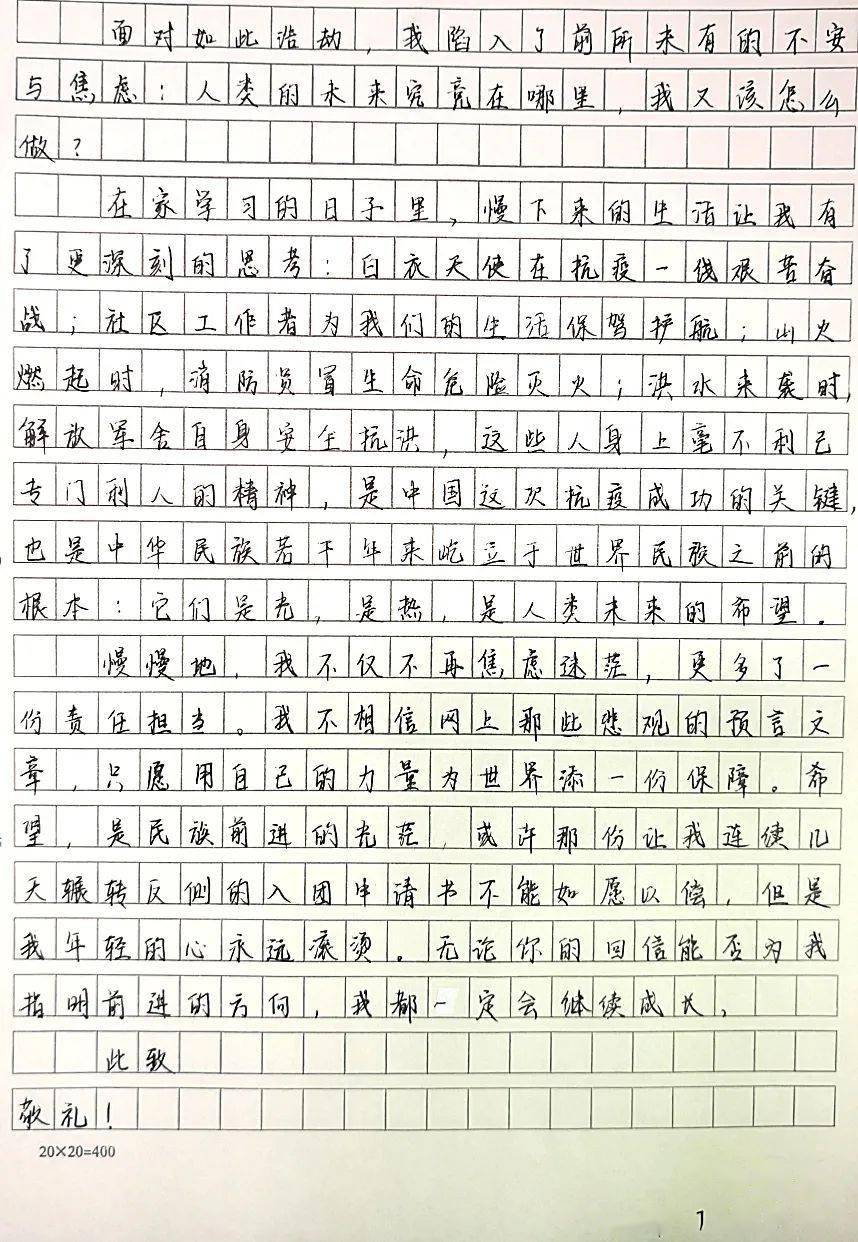 面对如此浩劫，我陷入了前所未有的不安
与焦虑：人类的未来究竟在哪里，我又该怎么
做？
在家学习的日子里，慢下来的生活让我有
了更深刻的思考：白衣天使在抗疫一线艰苦奋
战；社区工作者为我们的生活保驾护航；山火
燃起时，消防员冒生命危险灭火；洪水来袭时，
解放军舍自身安全抗洪，这些人身上毫不利己
专门利人的精神，是中国这次抗疫成功的关键，
也是中华民族若干年来屹立于世界民族之前的
根本：它们是光，是热，是人类未来的希望。
慢慢地，我不仅不再焦虑迷茫，更多了一
份责任担当。我不相信网上那些悲观的预言文
章，只愿用自己的力量为世界添一份保障。希
望，是民族前进的光茫，或许那份让我连续几
天辗转反侧的入团申请书不能如愿以偿，但是
我年轻的心永远滚烫。无论你的回信能否为我
指明前进的方向，我都一定会继续成长，
此致
敬礼！
20×20=400
7